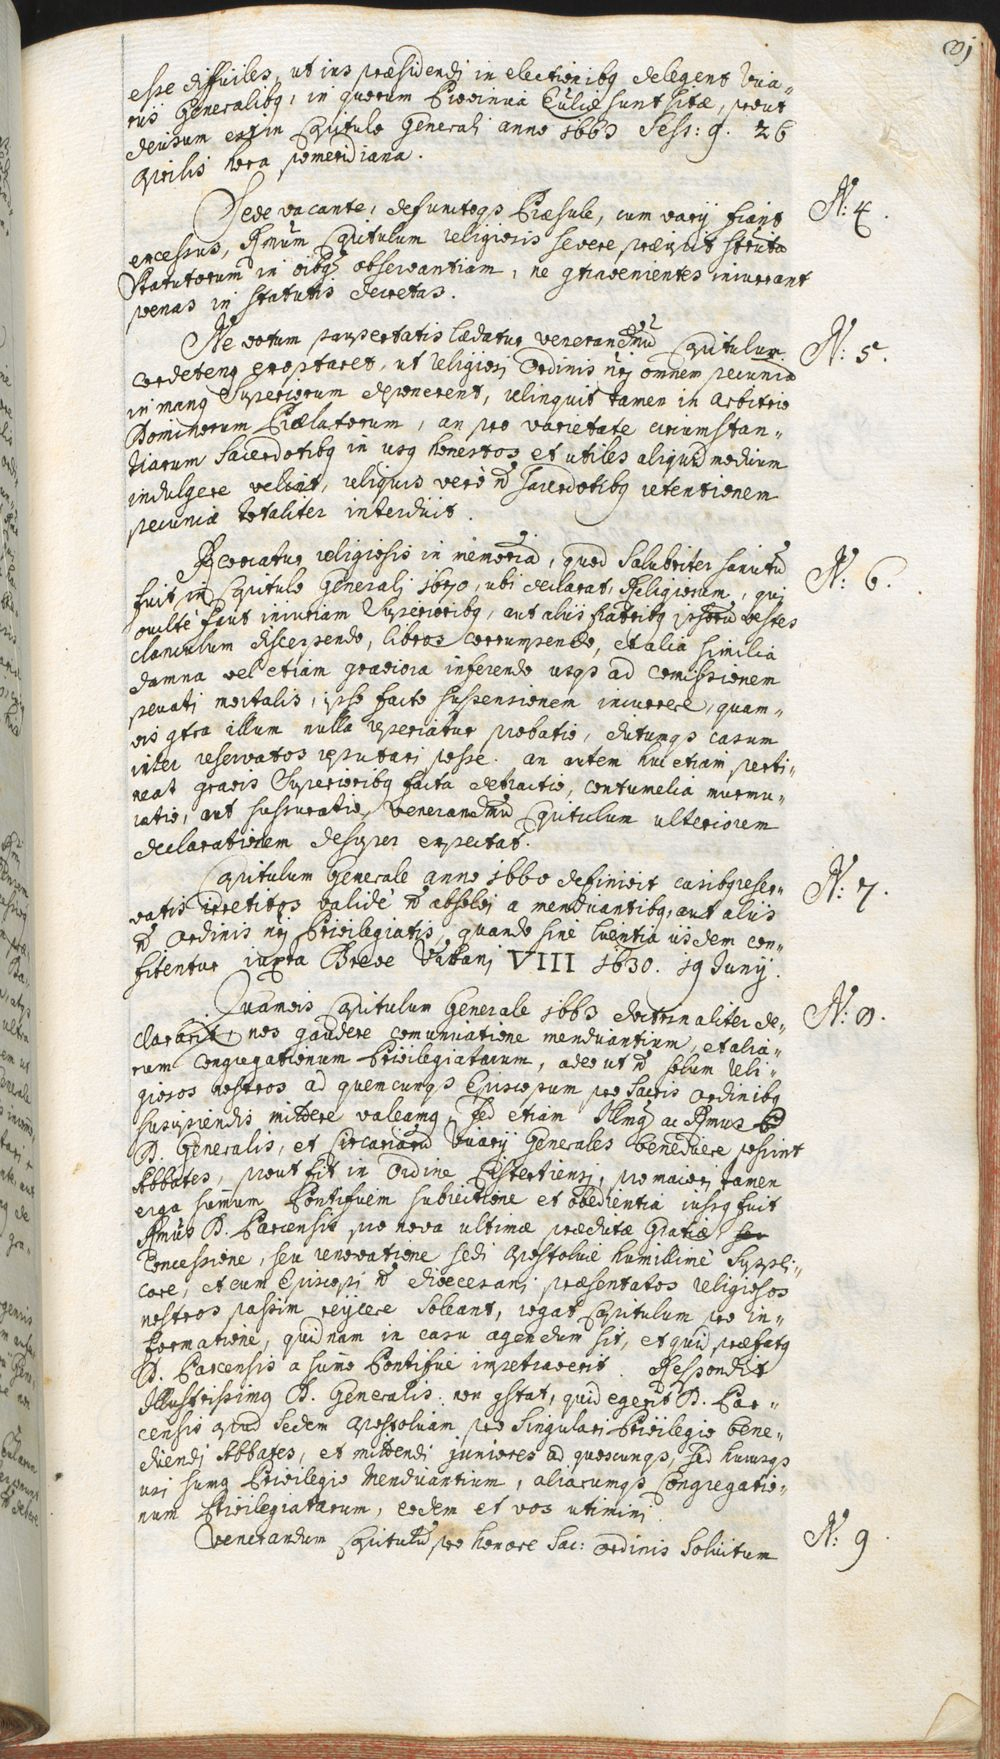 vj
esse difficiles, ut ius præsidendi in electionibq delegent Vica„
riis Generalibq, in quorum Provincia Ecclæ sunt sitæ, prout
decisum est in Cpitulo Generali anno 1663 Sess: 9. 26
Aprilis hora pomeridiana.
N: 4.
Sede vacante, defunctoqs Præsule, cum varij fiant
excessus, Rmum Cpitulum religiosis severe præcipit strictã
Statutorum in oibq observantiam, ne gtravenientes incurrant
poenas in statutis decretas.
N: 5.
Ne votum paupertatis lædatur venerandmũ Cpitulum
cordetenq exoptaret, ut religiosi Ordinis nri omnem pecuniã
in manq Superiorum deponerent, relinquit tamen in Arbitrio
Dominorum Prælatorum, an pro varietate circumstan„
tiarum Sacerdotibq in usq honestos et utiles aliquid modicum
indulgere velint, reliquis verò ñ Sacerdotibq retentionem
pecuniæ totaliter interdicit.
N: 6.
Revocatur religiosis in memoriã, quod salubriter sancitũ
fuit in Cpitulo Generali 1670, ubi declarat, Religiosum, qui
occultè faut iniuriam Superioribq, aut aliis fratribq ipsorũ vestes
clanculum discerpendo, libros corrumpendo, et alia similia
damna vel etiam graviora inferendo usqs ad comissionem
peccati mortalis, ipso facto suspensionem incurrere, quam„
vis gtra illum nulla reperiatur probatio, dictumqs casum
inter reservatos reputari posse. an autem huc etiam perti„
neat gravis Superioribq facta detractio, contumelia murmu„
ratio, aut susurratio, venerandmũ Cpitulum ulteriorem
declarationem desuper expectat.
N: 7.
Cpitulum Generale anno 1660 definivit casibqreser„
vatis irretitos validè ñ absolvi a mendicantibq, aut aliis
ñ Ordinis nri Privilegiatis, quando sine licentia iisdem con„
fitentur iuxta Breve Urbani VIII 1630. 19 Junij.
N: 8.
Quamvis Cpitulum Generale 1663 doctrinaliter de„
clararit nos gaudere comunicatione mendicantium, et alia„
rum Congregationum Privilegiatarum, adeo ut ñ solum reli„
giosos nostros ad quemcunqs Episcopum pro Sacris Ordinibq
suscipiendis mittere valeamq, sed etiam Illmq ac Rmus
D. Generalis, et Circariarũ Vicarij Generales benedicere possint
Abbates, prout fit in Ordine Cistertiensi, pro maiori tamen
erga sumum Pontificem subiectione et obedientia iussq fuit
Rmus D. Parcensis pro nova ultimæ prædictæ Gratiæ
Concessione, seu renovatione sedi Apostolicæ humillimè Suppli„
care, et cum Episcopi ñ dioecesani præsentatos religiosos
nostros passim reijcere soleant, rogat Cpitulum pro in„
formatione, quidnam in casu agendum sit, et quid præfatq
D. Parcensis a sumo Pontifice impetraverit. Respondit
Illustrissimq D. Generalis. non gstat, quid egerit D. Par„
censis apud Sedem Apostolicam pro Singulari Privilegio bene„
dicendi Abbates, et mittendi juniores ad quoscunqs, sed hucusqs
usi sumq Privilegio Mendicantium, aliarumqs Congregatio„
num Privilegiatarum, eodem et vos utimini.
N: 9
Venerandum Cpitulũ pro honore Sac: Ordinis Solicitum